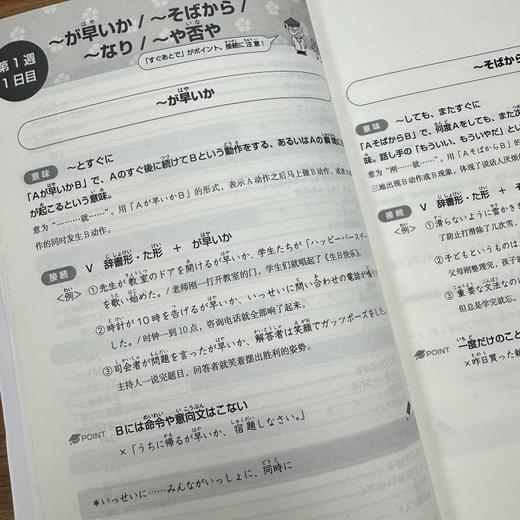 第1週
1日目
～が早いか / ～そばから /
～なり / ～や否や
「すぐあとで」がポイント。接続に注意！
～が早いか
意味 ～とすぐに
「Aが早いかB」で、Aのすぐ後に続けてBという動作をする、あるいはAの瞬間に
が起こるという意味。
意为“一……就……”。用「Aが早いかB」的形式，表示A动作之后马上做B动作，或者
作的同时发生B动作。
接続 V 辞書形・た形 + が早いか
〈例〉①先生が教室のドアを開けるが早いか、学生たちが「ハッピーバースデー
を歌い始めた。/老师刚一打开教室的门，学生们就唱起了《生日快乐》。
②時計が10時を告げるが早いか、いっせいに問い合わせの電話が
した。/时钟一到10点，咨询电话就全部响了起来。
③司会者が問題を言ったが早いか、解答者は笑顔でガッツポーズをした。
主持人一说完题目，回答者就笑着摆出胜利的姿势。
POINT Bには命令や意向文はこない
×「うちに帰るが早いか、宿題しなさい。」
*いっせいに……みんながいっしょに、同時に
～そばから
意味 ～しても、またすぐに
「AそばからB」で、何度Aをしても、また次
味。話し手の「もういい、もういやだ」とい
意为“刚……就……”。用「AそばからB」
三地出现B动作或B现象。体现了说话人厌烦
接続 V 辞書形・た形 + そ
〈例〉①滑らないように雪かきを
了防止打滑除了几次雪，
②子どもというものは
父母刚整理完，孩子就
③重要な文法なのに
但总是学完就忘。
POINT 一度だけのこと
×昨日買った